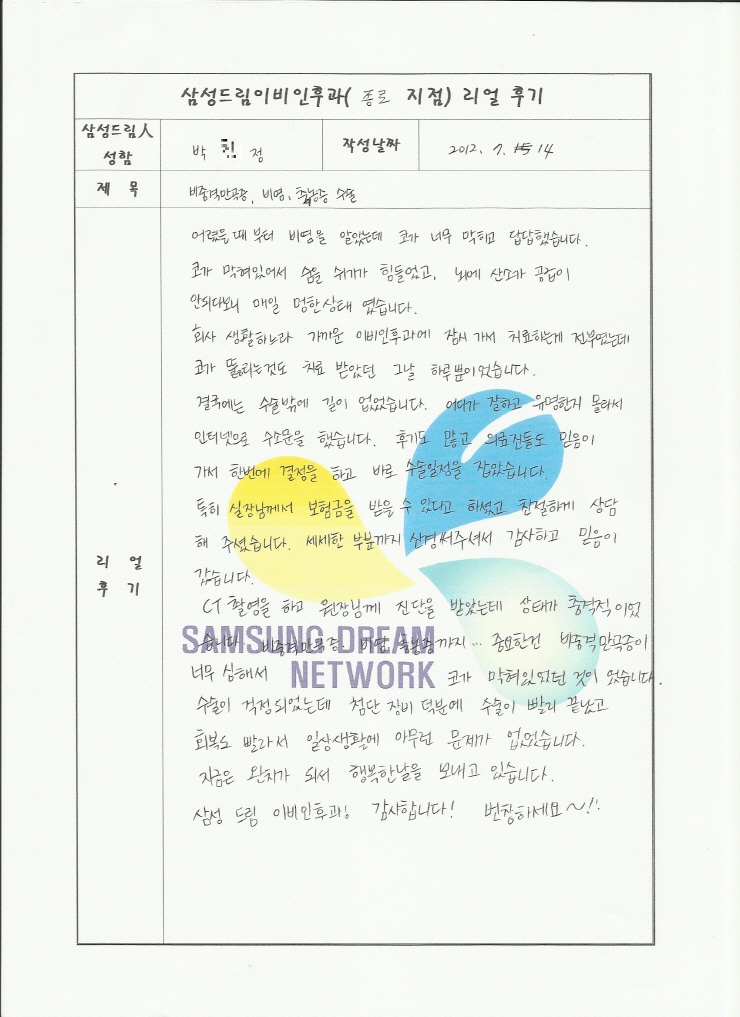 삼성드림이비인후과( 종로 지점) 리얼 후기
삼성드림人 성함
박 정
작성날짜
2012. 7. 14
제 목
비중격만곡증, 비염, 축농증 수술
리 얼 후 기
어렸을때 부터 비염을 앓았는데 코가 너무 막히고 답답했습니다.
코가 막혀있어서 숨을 쉬기가 힘들었고, 뇌에 산소가 공급이
안되다보니 매일 멍한상태 였습니다.
회사 생활하느라 가까운 이비인후과에 잠시 가서 치료하는게 전부였는데
코가 뚫리는것도 치료 받았던 그날 하루뿐이었습니다.
결국에는 수술밖에 길이 없었습니다. 어디가 잘하고 유명한지 몰라서
인터넷으로 수소문을 했습니다. 후기도 많고 의료진들도 믿음이
가서 한번에 결정을 하고 바로 수술일정을 잡았습니다.
특히 실장님께서 보험금을 받을 수 있다고 하셨고 친절하게 상담
해 주셨습니다. 세세한 부분까지 신경써주셔서 감사하고 믿음이
갔습니다.
CT 촬영을 하고 원장님께 진단을 받았는데 상태가 충격적 이었
습니다. 비중격만곡증, 비염, 축농증까지... 중요한건 비중격만곡증이
너무 심해서 코가 막혀있었던 것이 었습니다.
수술이 걱정되었는데 첨단 장비 덕분에 수술이 빨리 끝났고
회복도 빨라서 일상생활에 아무런 문제가 없었습니다.
지금은 완치가 되서 행복한날을 보내고 있습니다.
삼성 드림 이비인후과! 감사합니다! 번창하세요~!!
SAMSUNG DREAM
NETWORK